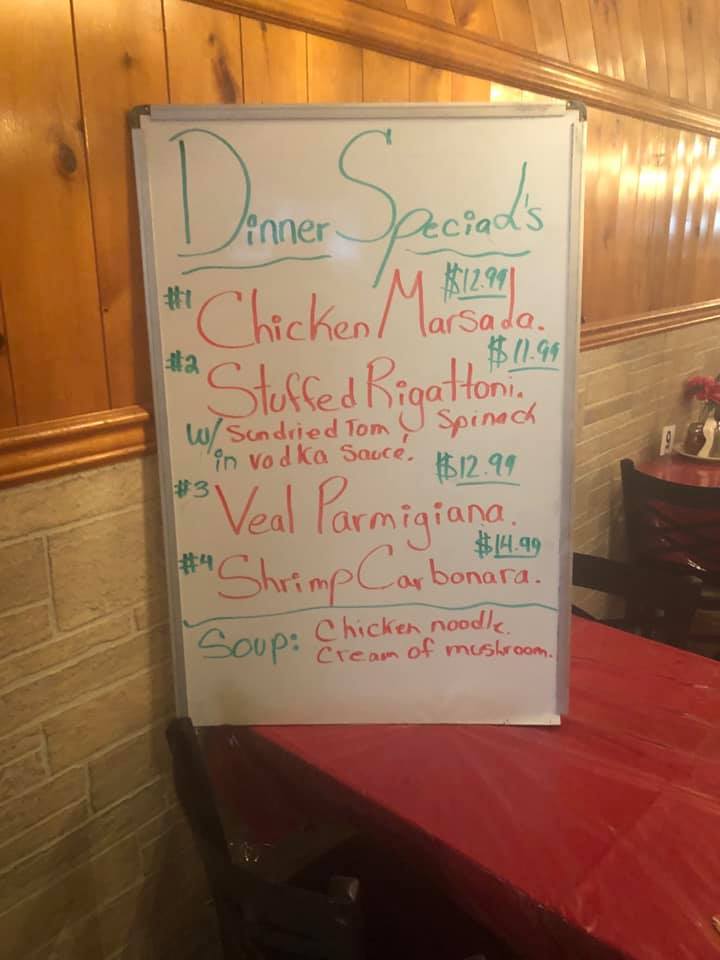 Dinner Special's
#1 Chicken Marsala. $12.99
#2 Stuffed Rigattoni. $11.99
w/ Sundried Tom & Spinach
in vodka Sauce.
#3 Veal Parmigiana. $12.99
#4 Shrimp Carbonara. $14.99
Soup: Chicken noodle.
Cream of mushroom.
9